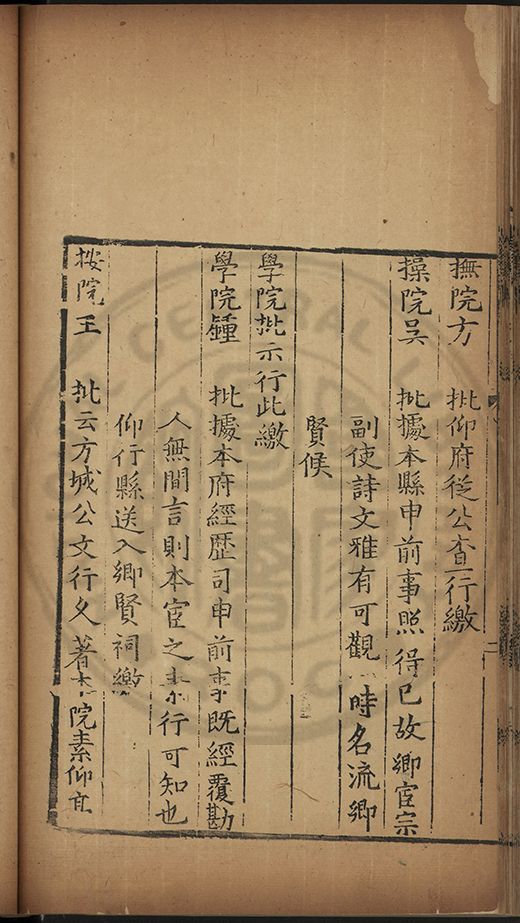 撫院方 批仰府從公查行繳
操院吳 批據本縣申前事照得已故鄉宦宗
副使詩文雅有可觀 時名流鄉
賢候
學院批示行此繳
學院鍾 批據本府經歷司申前事既經覆勘
人無間言則本宦之素行可知也
仰行縣送入鄉賢祠繳
按院王 批云方城公文行久著本院素仰宜